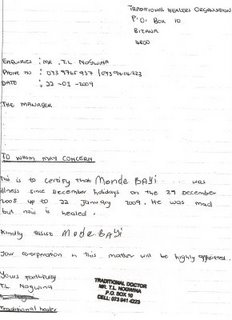 TRADITIONAL HEALERS ORGANISATION
P.O. BOX 10
BIZANA
4800
ENQUIRIES : MR. T.L NOGWINA
PHONE NO :
DATE : 22-03-2009
THE MANAGER
TO WHOM MAY CONCERN
This is to certify that Monde BAYi was
illness since December holidays on the 29 December
2008 up to 22 January 2009. He was mad
but now is healed.
Kindly assist Monde BAYi
Your cooperation in this matter will be highly appreciated.
Yours faithfully
T.L Nogwina
Traditional healer
TRADITIONAL DOCTOR
MR. T.L. NOGWINA
P.O. BOX 10
CELL: 073 941 4223